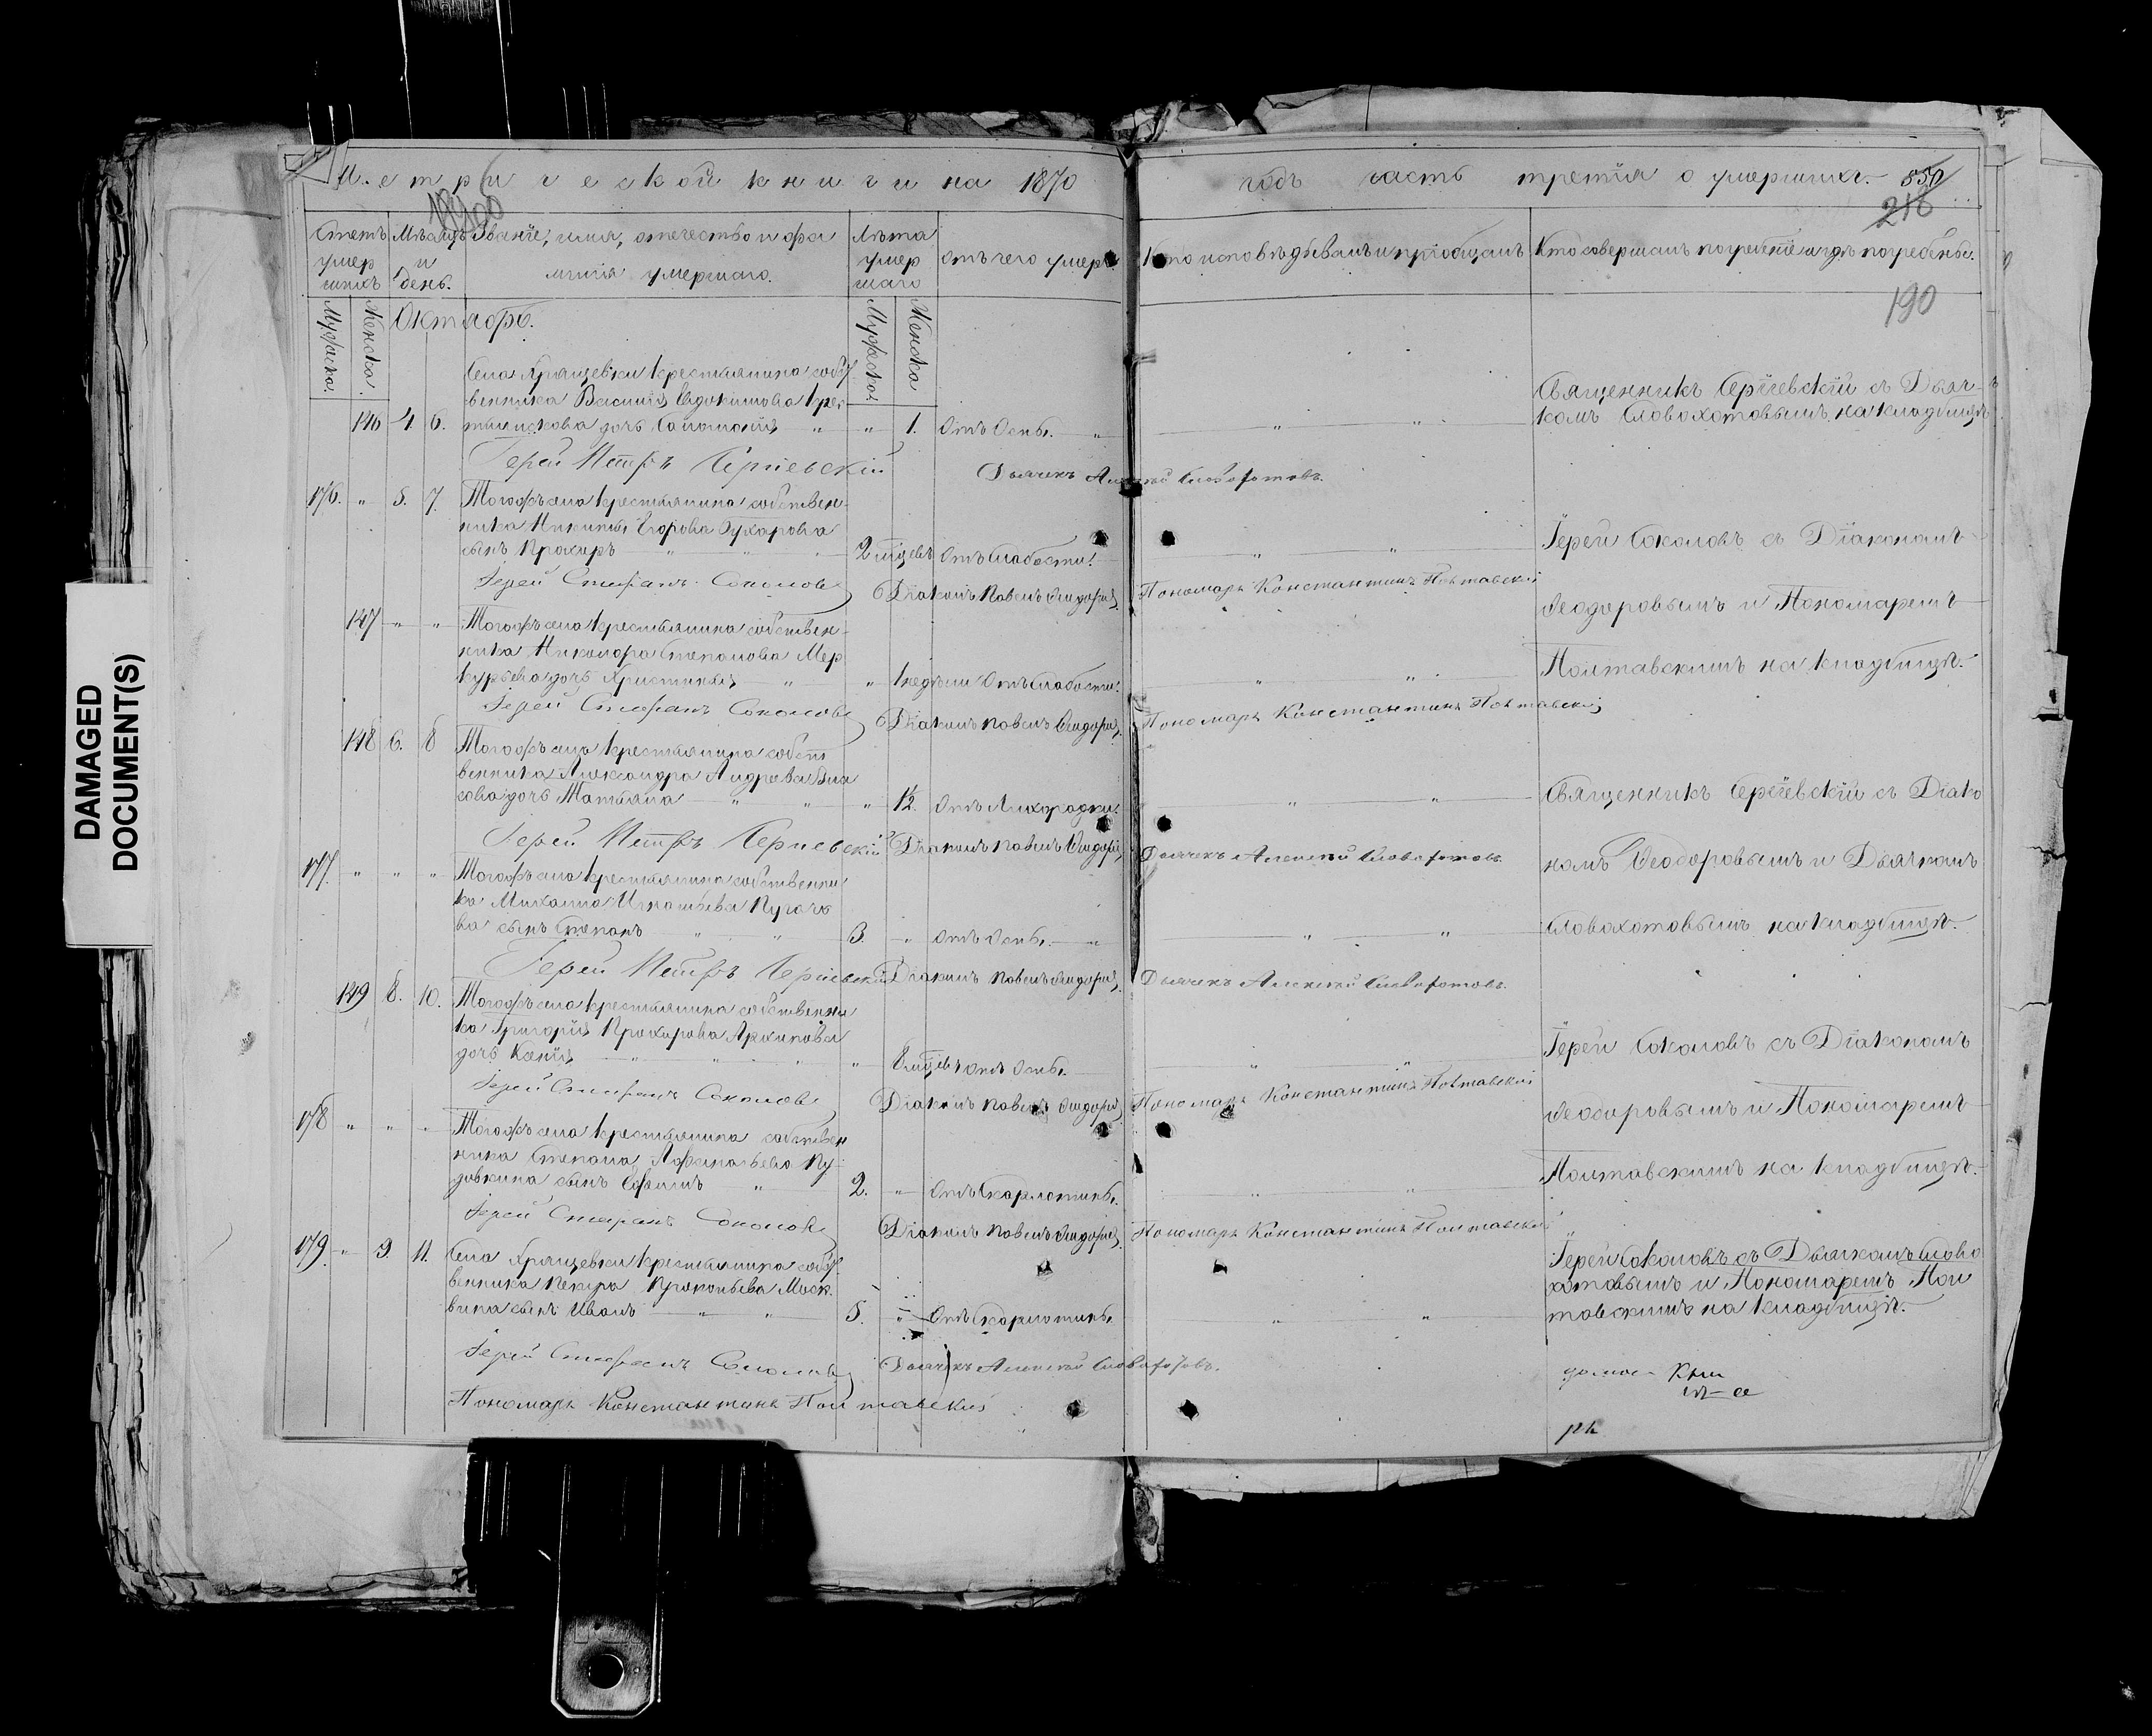 Метрической книги на 1870
годъ часть третія о умершихъ.
850
216
190
Счетъ умершихъ
Мѣсяцъ и день.
Званіе, имя, отечество и фамилія умершаго.
Лѣта умершаго
Отъ чего умеръ
Кто исповѣдывалъ и пріобщалъ
Кто совершалъ погребеніе и гдѣ погребены.
Мужеска. Женска. Октябрь. Мужеска. Женска
Села Хрящевки крестьянина собст
венника Василія Евдокимова Крес
146 4 6. дочь Соломонія „ „ 1. Отъ Оспы. „
Священникъ Сергіевскій съ Дьяч-
комъ Словохотовымъ на кладбищѣ
Іерей Петръ Сергіевскій Дьячекъ Алексѣй Словохотовъ.
176. „ 5. 7. Тогоже села крестьянина собствен-
ника Никиты Егорова Сухарова
сынъ Прохоръ „ „ „ 2 мѣсяцевъ Отъ слабости.
Іерей Соколовъ съ Діакономъ
Іерей Стефанъ Соколовъ Діаконъ Павелъ Ѳеодоровъ Пономарь Константинъ Полтавскій
Ѳеодоровымъ и Пономаремъ
147 „ „ Тогоже села крестьянина собствен-
ника Никифора Степанова Мер
курьева дочь Христинія „ „ 1 недѣли Отъ слабости.
Полтавскимъ на кладбищѣ.
Іерей Стефанъ Соколовъ Діаконъ Павелъ Ѳеодоровъ Пономарь Константинъ Полтавскій
148 6. 8 Тогоже села крестьянина собст
венника Александра Андреева Вла
сова дочь Татьяна „ „ „ 1/2. Отъ Лихорадки.
Священникъ Сергіевскій съ Діако
Іерей Петръ Сергіевскій Діаконъ Павелъ Ѳеодоровъ Дьячекъ Алексѣй Словохотовъ
номъ Ѳеодоровымъ и Дьячкомъ
177. „ „ „ Тогоже села крестьянина собственни
ка Михаила Игнатьева Пугаче
ва сынъ Степанъ „ „ 3. „ Отъ Оспы. „
Словохотовымъ на кладбищѣ.
Іерей Петръ Сергіевскій Діаконъ Павелъ Ѳеодоровъ Дьячекъ Алексѣй Словохотовъ.
149 8. 10. Тогоже села крестьянина собственни
ка Григорія Прохорова Архипова
дочь Ксенія „ „ „ 8 мѣсяцевъ Отъ Оспы.
Іерей Соколовъ съ Діакономъ
Іерей Стефанъ Соколовъ Діаконъ Павелъ Ѳеодоровъ Пономарь Константинъ Полтавскій
Ѳеодоровымъ и Пономаремъ
178 „ „ „ Тогоже села крестьянина собствен
ника Степана Афанасьева Пу
довкина сынъ Ефимъ „ 2. „ Отъ Скарлотины.
Полтавскимъ на кладбищѣ.
Іерей Стефанъ Соколовъ Діаконъ Павелъ Ѳеодоровъ Пономарь Константинъ Полтавскій
179. „ 9. 11. Села Хрящевки крестьянина собст
венника Петра Прокопьева Моск
вина сынъ Иванъ „ „ 5. „ Отъ Скарлотины.
Іерей Соколовъ съ Дьячкомъ Слово
хотовымъ и Пономаремъ Пол
тавскимъ на кладбищѣ.
Іерей Стефанъ Соколовъ Дьячекъ Алексѣй Словохотовъ.
Пономарь Константинъ Полтавскій
DAMAGED
DOCUMENT(S)